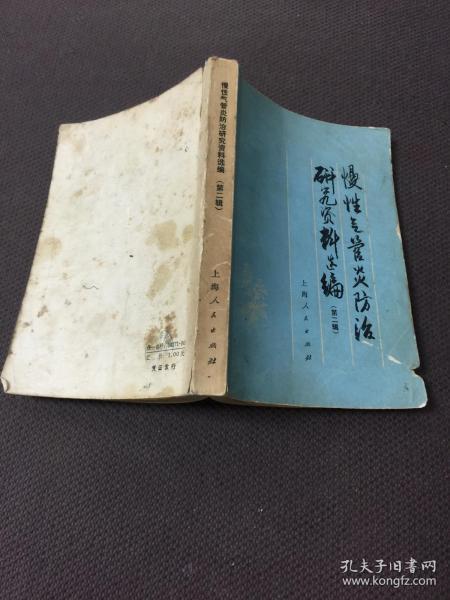 慢性气管炎防治
研究资料选编
(第二辑)
上海人民出版社
慢性气管炎防治研究资料选编 (第二辑)
上海人民出版社
1.00元
孔夫子旧书网
www.kongfz.com